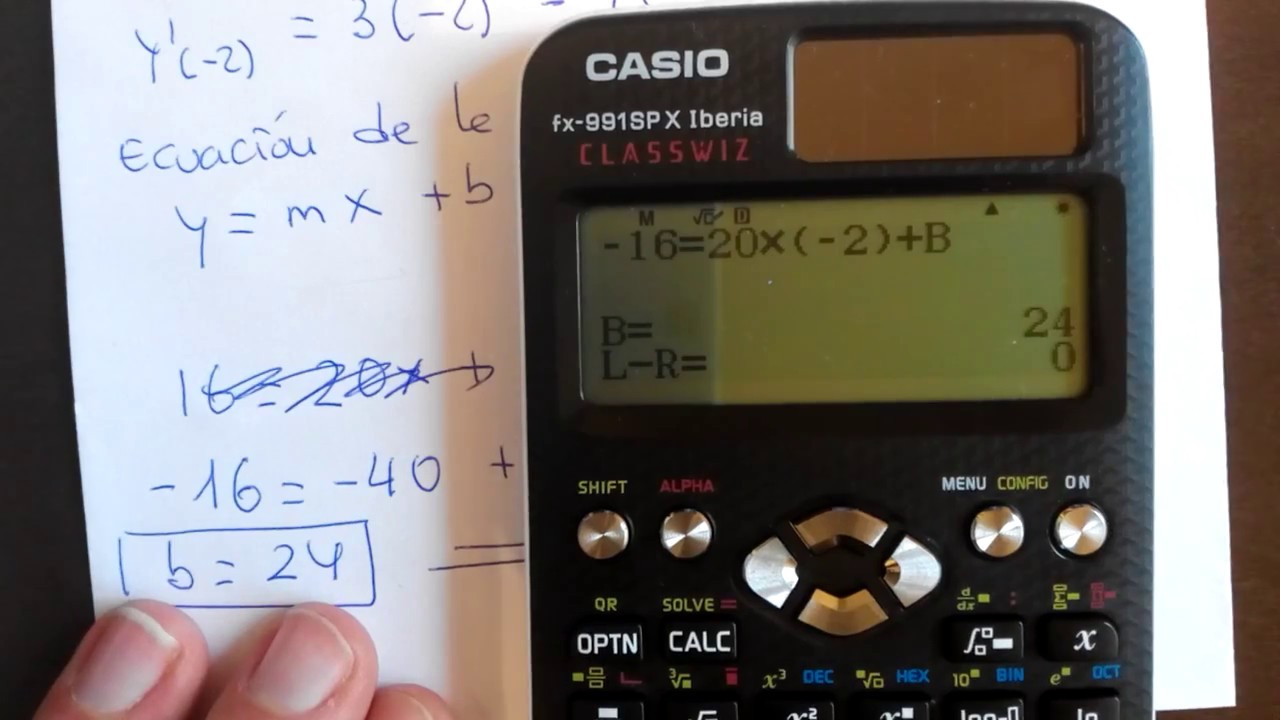 y'(-2) = 3(-2)
Ecuación de le
y = mx + b
16 = 20x b
-16 = -40 +
b = 24
CASIO
fx-991SP X Iberia
CLASSWIZ
M √ D ▲
-16=20×(-2)+B
B= 24
L-R= 0
SHIFT ALPHA MENU CONFIG ON
QR SOLVE = d/dx :
OPTN CALC x
x³ DEC HEX 10 BIN e OCT
x² ln